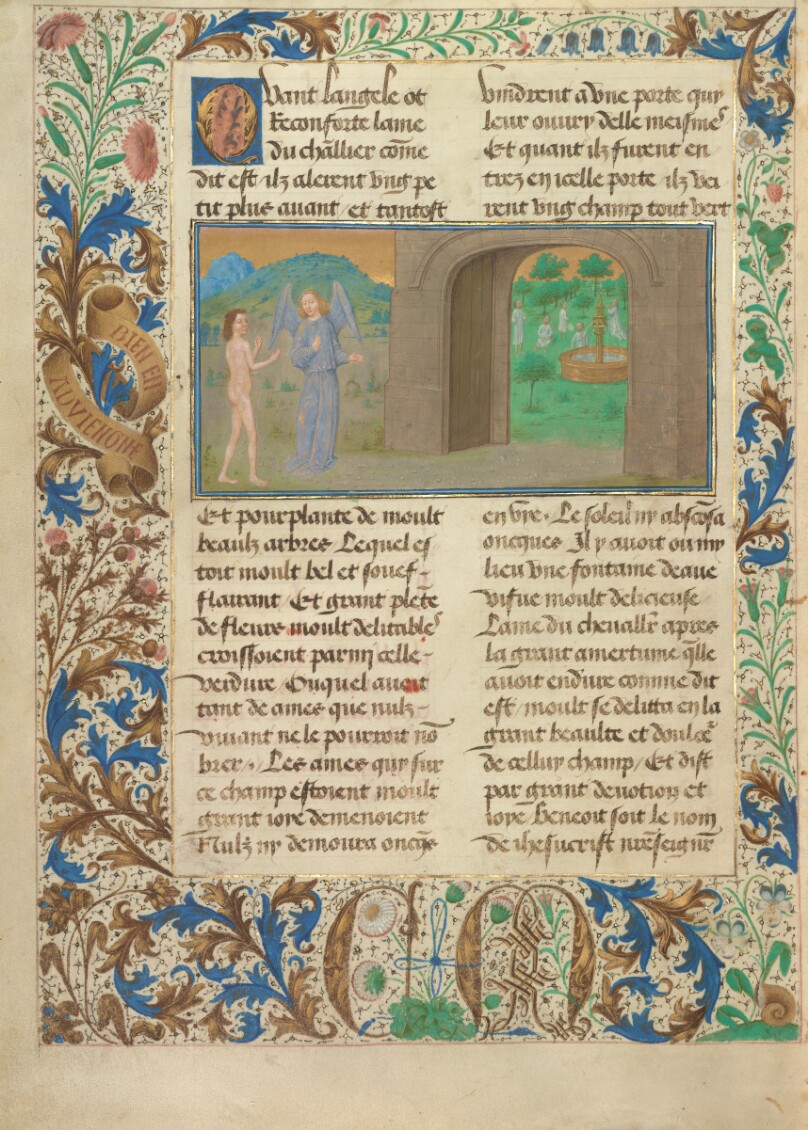 Quant langele ot
reconforte lame
du chłlier cōme
dit est / ilz alerent vng pe
tit plus auant / et tantost
vindrent a vne porte quy
leur ouury delle meisme
Et quant ilz furent en
trez en icelle porte ilz vei
rent vng champ tout vert
BIEN EN
AVIENGNE
Et pourplante de moult
beaulz arbres Lequel es
toit moult bel et souef -
flairant Et grant plēte
de fleurs moult delitables
croissoient parmi celle -
verdure / Ouquel auoit
tant de ames que nulz -
viuant ne le pourroit nō
brer . Les ames quy sur
ce champ estoient moult
grant ioye demenoient
Nulz ny demoura oncq̄s
en vye . Le soleil ny absconsa
oncques Il y auoit ou my
lieu vne fontaine deaue
vifue moult delicieuse
Lame du cheuallr apres
la grant amertume q̄lle
auoit endure comme dit
est / moult se delitta en la
grant beaulte et doulcer
de celluy champ / Et dist
par grant deuotion et
ioye Benoit soit le nom
de ihesucrist nr̄e seignr
C M